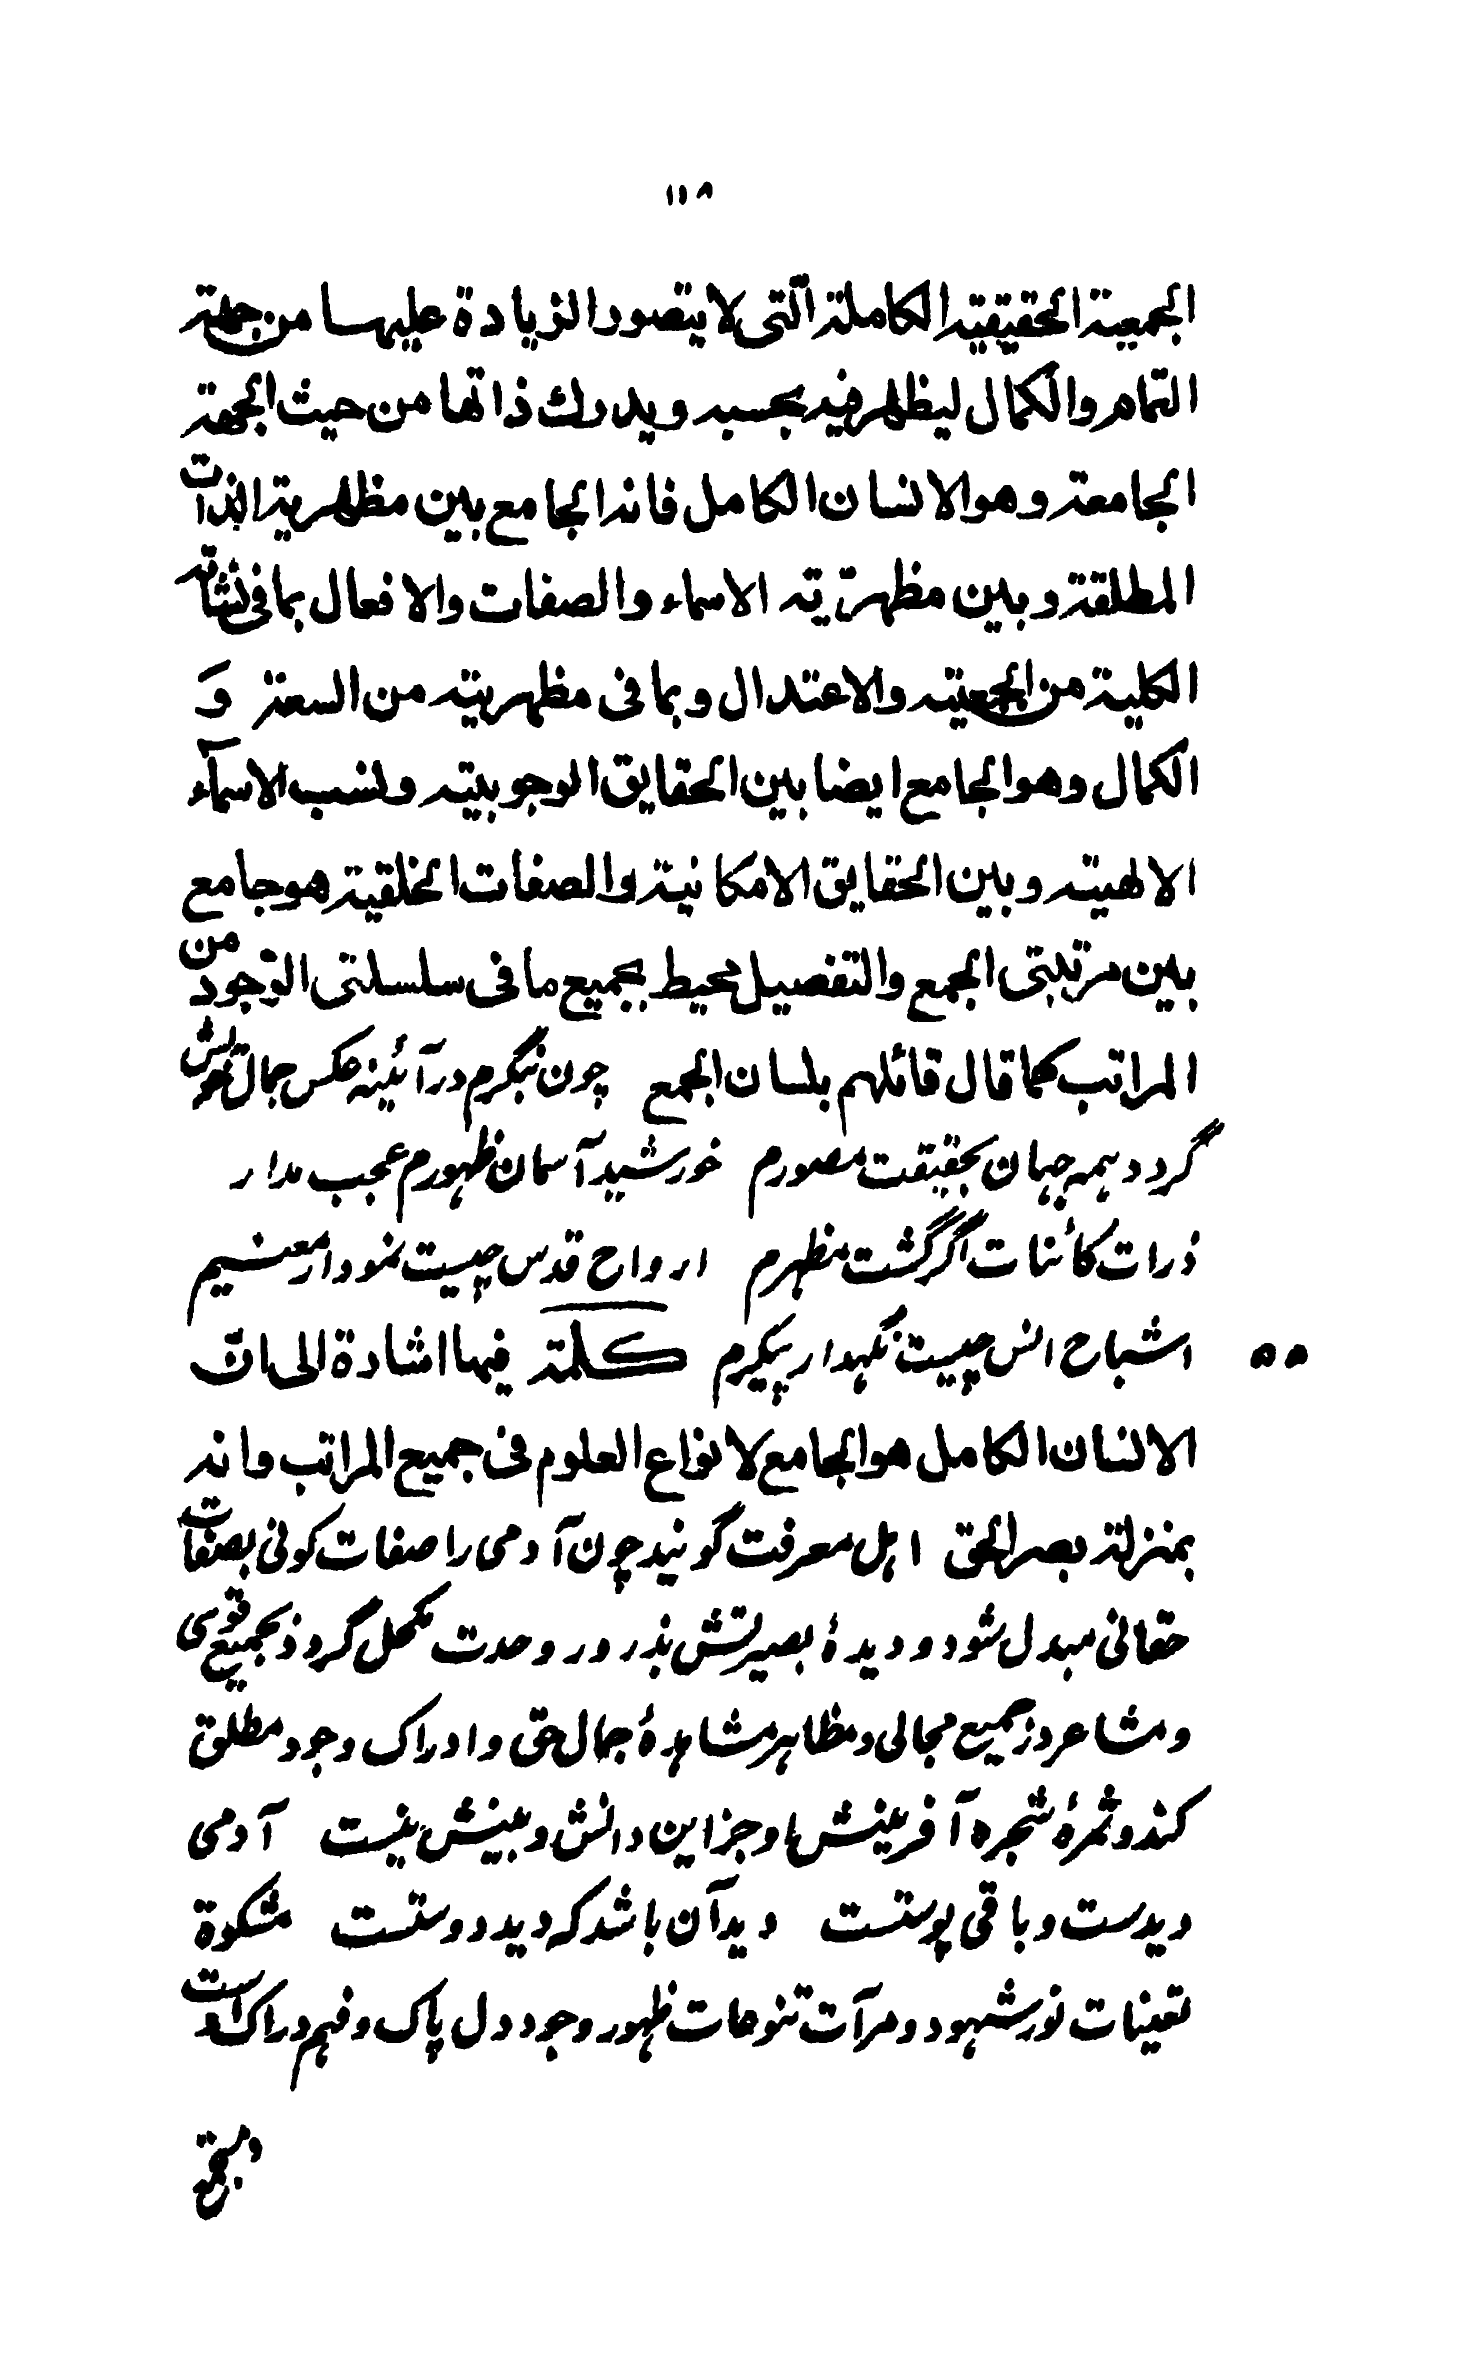 ۱۱۸
الجمعیة الحقیقیة الکاملة الّتی لا یتصور الزیادة علیها من جهة
التمام والکمال لیظهر فیه بحسبه ویدرك ذاتها من حیث الجهة
الجامعة وهو الانسان الکامل فانه الجامع بین مظهریة الذات
المطلقة وبین مظهریّة الاسماء والصفات والافعال بما فی نشأته
الکلیة من الجمعیته والاعتدال وبما فی مظهریته من السعة وَ
الکمال وهو الجامع ایضا بین الحقایق الوجوبیته ونسب الاسمآء
الالهیته وبین الحقایق الامکانیة والصفات الخلقیة هو جامع
بین مرتبتی الجمع والتفصیل محیط بجمیع ما فی سلسلتی الوجود من
المراتب کما قال قائلهم بلسان الجمع چون بنگرم در آئینه عکس جمال خویش
گردد همه جهان بحقیقت مصورم خورشید آسمان ظهورم عجب مدار
ذرات کائنات اگر گشت مظهرم ارواح قدس چیست نمودار معنیم
اشباح انس چیست نگهدار پیکرم کلمة فیها اشارة الی انّ
۵۵
الانسان الکامل هو الجامع لانواع العلوم فی جمیع المراتب وانه
بمنزلة بصر الحق اهل معرفت گویند چون آدمی را صفات کونی بصفات
حقانی مبدل شود و دیدهٔ بصیرتش بذرور وحدت مکحل گردد بجمیع قوی
و مشاعر در جمیع مجالی و مظاهر مشاهدهٔ جمال حق و ادراک وجود مطلق
کند و ثمرهٔ شجره آفرینش ما و جز این دانش و بینش نیست آدمی
دیدست و باقی پوستست دید آن باشد که دید دوستست مشکوة
تعینات نور شهود و مرآت تنوعات ظهور وجود دل پاک و فهم دراک است